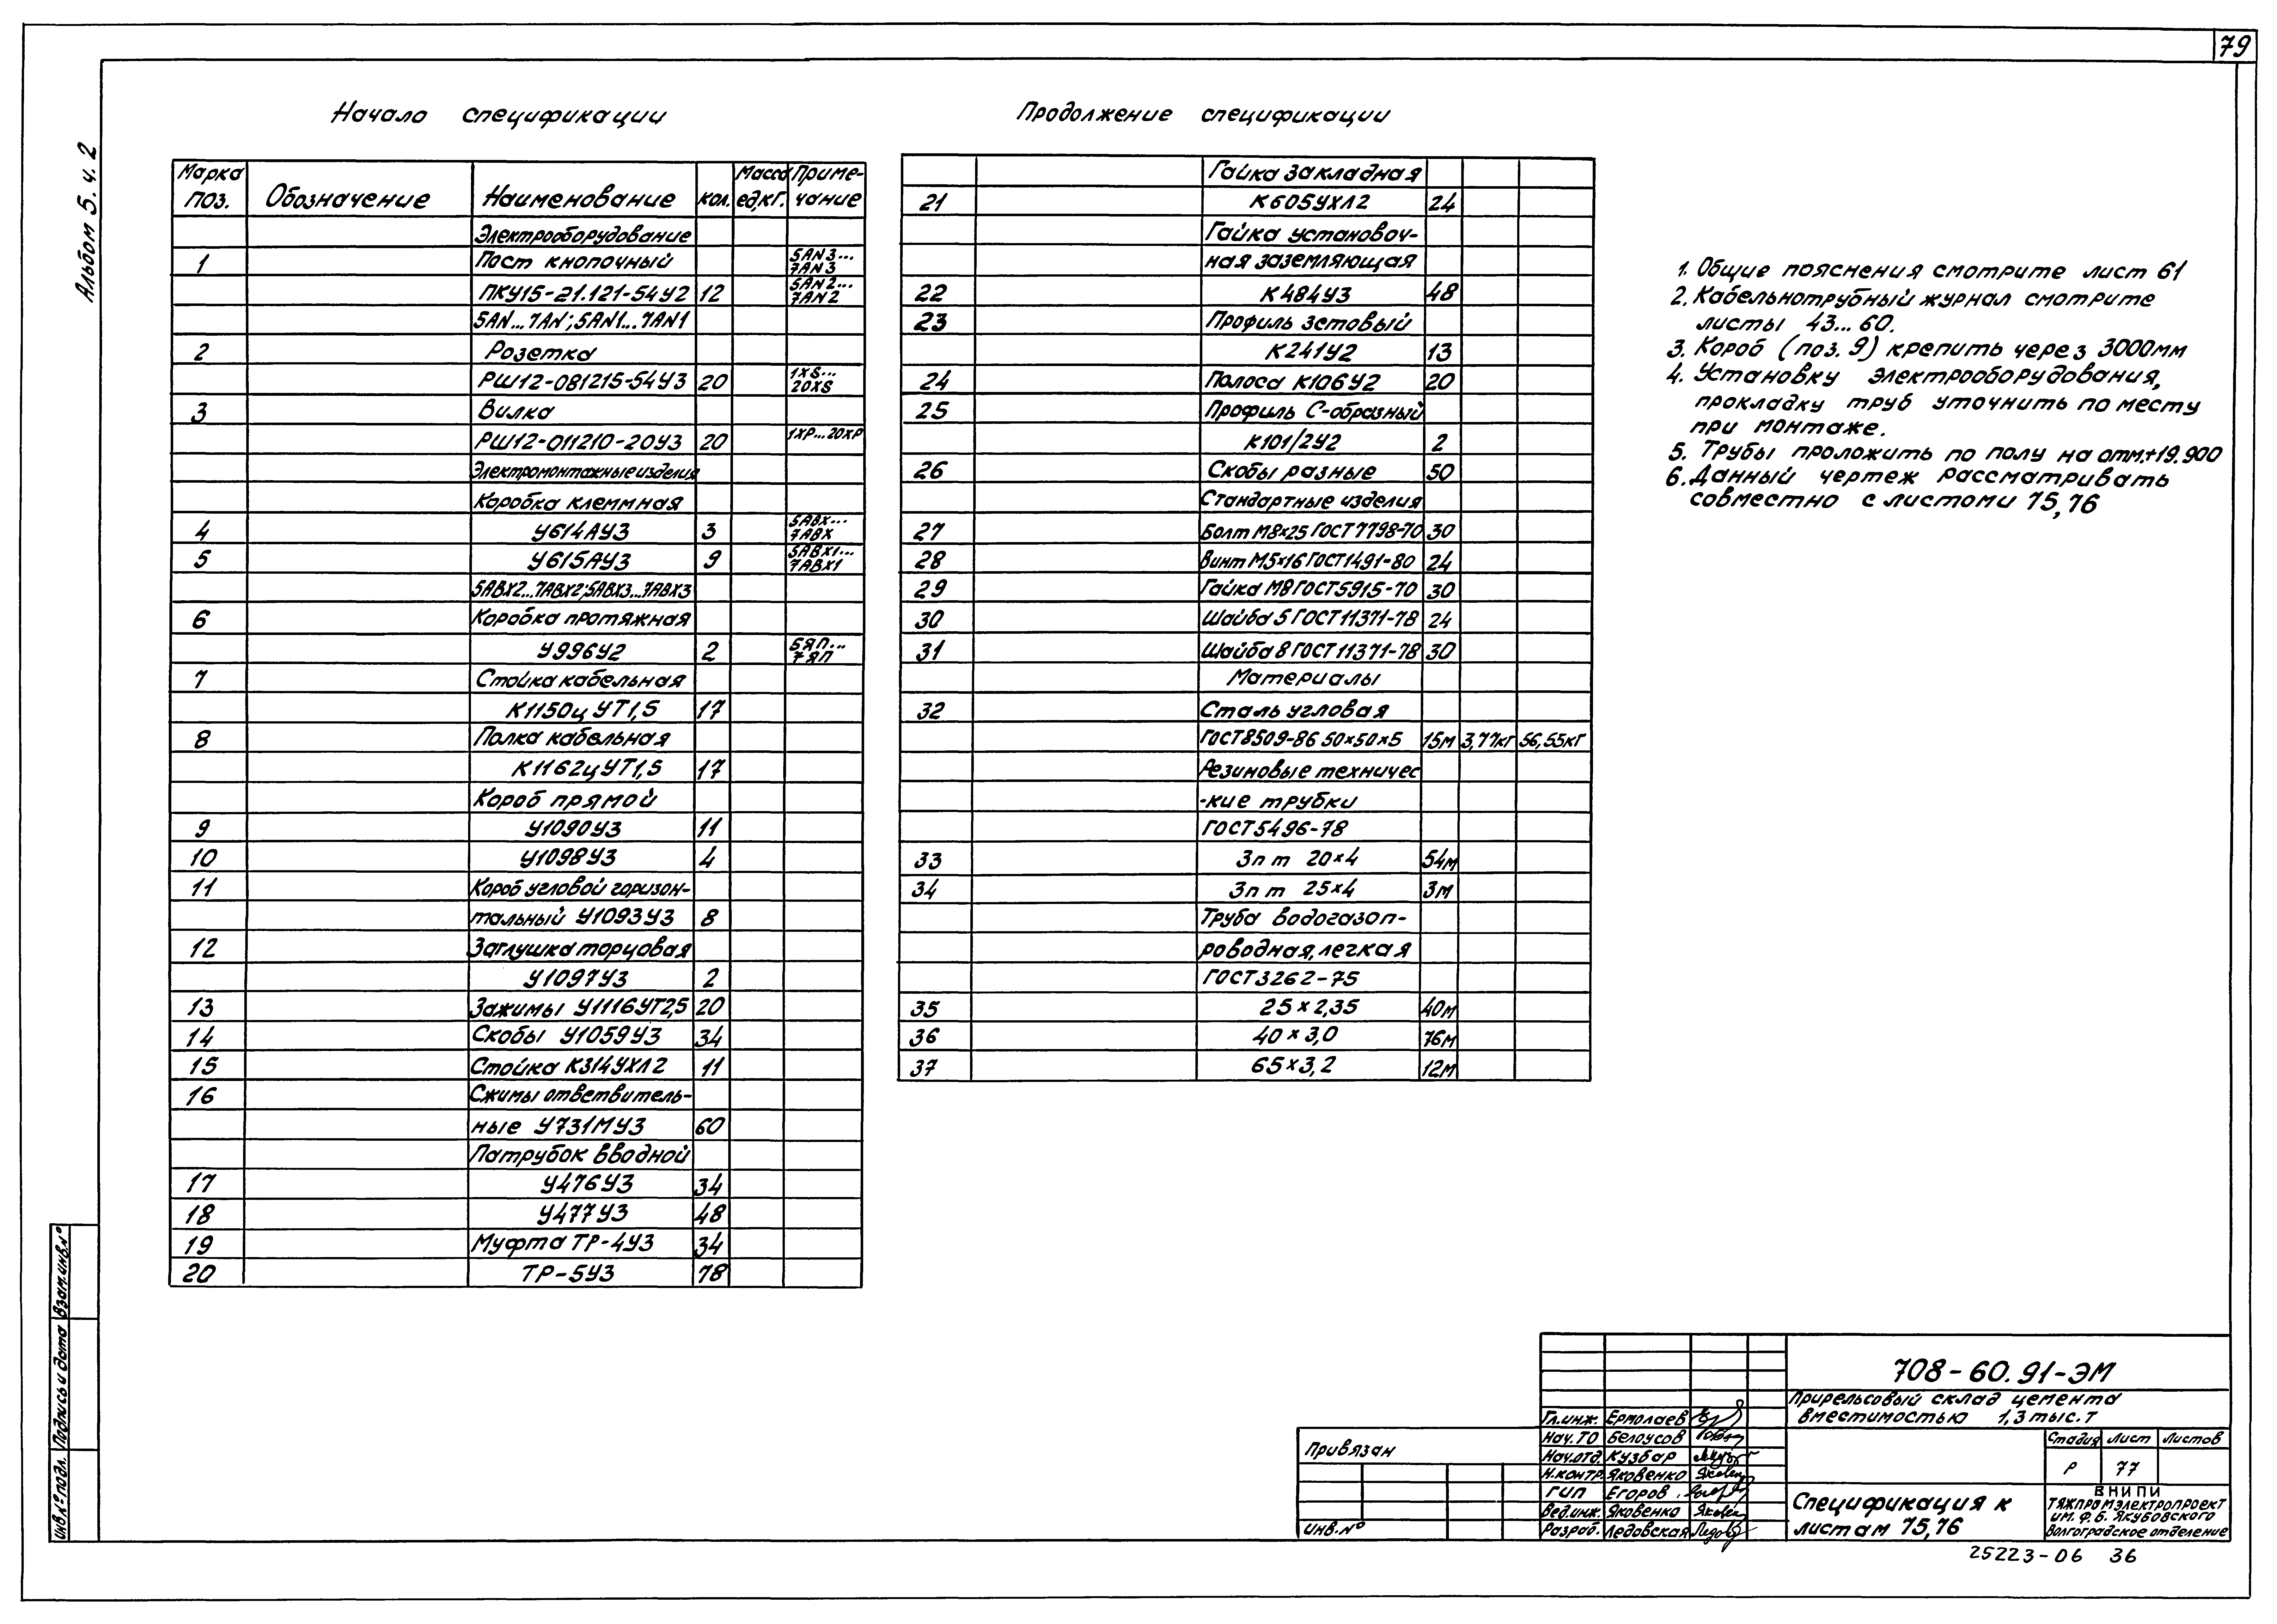 79
Альбом 5. ч. 2
Начало спецификации
Марка поз. Обозначение Наименование кол. Масса ед.кг. Примечание
Электрооборудование
1 Пост кнопочный 5AN3... 7AN3
ПКУ15-21.121-54У2 12 5AN2... 7AN2
5AN...7AN; 5AN1...7AN1
2 Розетка
РШ12-081215-54У3 20 1XS... 20XS
3 Вилка
РШ12-011210-20У3 20 1XP...20XP
Электромонтажные изделия
Коробка клеммная
4 У614АУ3 3 5ABX... 7ABX
5 У615АУ3 9 5ABX1... 7ABX1
5ABX2...7ABX2; 5ABX3...7ABX3
6 Коробка протяжная
У996У2 2 5ЯП... 7ЯП
7 Стойка кабельная
К1150ц УТ1,5 17
8 Полка кабельная
К1162цУТ1,5 17
Короб прямой
9 У1090У3 11
10 У1098У3 4
11 Короб угловой горизон-
тальный У1093У3 8
12 Заглушка торцовая
У1097У3 2
13 Зажимы У1116УТ2,5 20
14 Скобы У1059У3 34
15 Стойка К314УХЛ2 11
16 Сжимы ответвитель-
ные У731МУ3 60
Патрубок вводной
17 У476У3 34
18 У477У3 48
19 Муфта ТР-4У3 34
20 ТР-5У3 78
Продолжение спецификации
Гайка закладная
21 К605УХЛ2 24
Гайка установоч-
ная заземляющая
22 К484У3 48
23 Профиль зетовый
К241У2 13
24 Полоса К106У2 20
25 Профиль С-образный
К101/2У2 2
26 Скобы разные 50
Стандартные изделия
27 Болт М8×25 ГОСТ 7798-70 30
28 Винт М5×16 ГОСТ 1491-80 24
29 Гайка М8 ГОСТ 5915-70 30
30 Шайба 5 ГОСТ 11371-78 24
31 Шайба 8 ГОСТ 11371-78 30
Материалы
32 Сталь угловая
ГОСТ 8509-86 50×50×5 15м 3,77кг 56,55кг
Резиновые техничес
-кие трубки
ГОСТ 5496-78
33 3п т 20×4 54м
34 3п т 25×4 3м
Труба водогазоп-
роводная, легкая
ГОСТ 3262-75
35 25×2,35 40м
36 40×3,0 76м
37 65×3,2 12м
1. Общие пояснения смотрите лист 61
2. Кабельнотрубный журнал смотрите
листы 43...60.
3. Короб (поз. 9) крепить через 3000мм
4. Установку электрооборудования,
прокладку труб уточнить по месту
при монтаже.
5. Трубы проложить по полу на отм.+19.900
6. Данный чертеж рассматривать
совместно с листами 75,76
Привязан
Инв.№
Гл.инж. Ермолаев
Нач.ТО Белоусов
Нач.отд. Кузбар
Н.контр. Яковенко
ГИП Егоров
Вед.инж. Яковенко
Разраб. Ледовская
708-60.91-ЭМ
Прирельсовый склад цемента
вместимостью 1,3 тыс.т
Стадия Лист Листов
Р 77
Спецификация к
листам 75,76
ВНИПИ
Тяжпромэлектропроект
им. Ф.Б. Якубовского
Волгоградское отделение
25223-06 36
Взам.инв.№
Подпись и дата
Инв.№ подл.